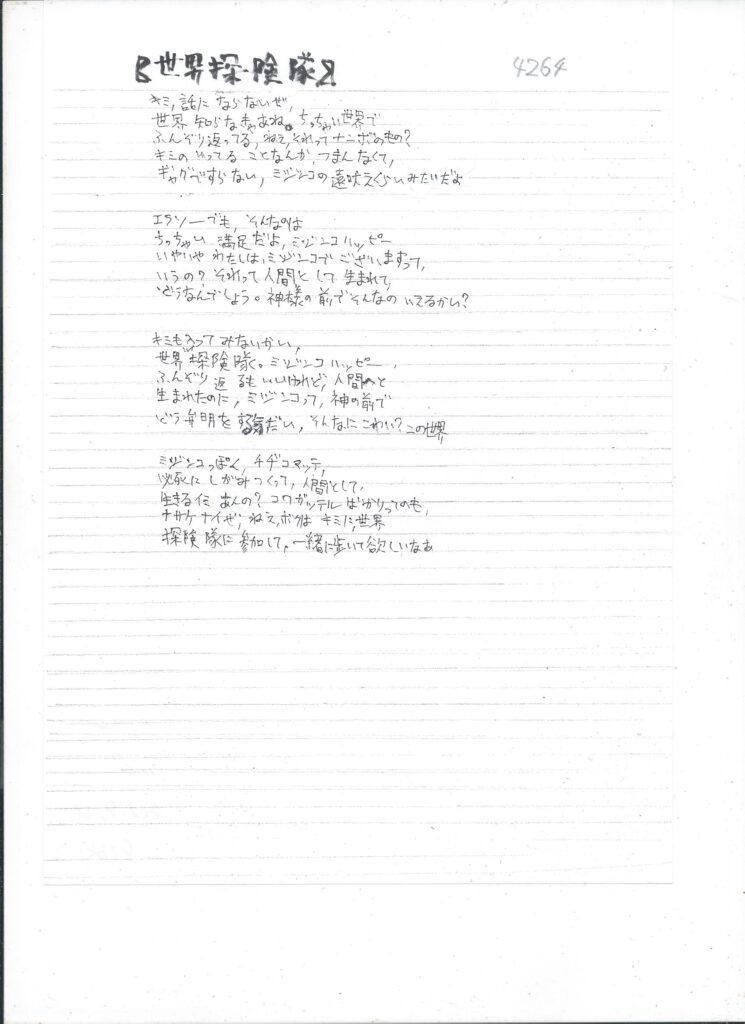 世界探険隊
4264
キミ,話に ならないぜ,
世界 知らなきゃあね。ちっちゃい世界で
ふんぞり返ってる,ねえ,それってナニボのもの?
キミの いってる ことなんか,つまんなくて,
ギャグですらない,ミジンコの遠吠えくらいみたいだよ
エラソーでも,そんなのは
ちっちゃい 満足だよ,ミジンコハッピー
いやいや わたしは,ミジンコでございますって,
いうの? それって人間として生まれて,
どうなんでしょう。神様の前でそんなの いえるかい?
キミも入ってみないかい,
世界探険隊。ミジンコハッピー,
ふんぞり返るもいいけれど,人間へと
生まれたのに,ミジンコって,神の前で
どう弁明をする気だい,そんなにこわい?この世界
ミジンコっぽく,チヂコマッテ,
必死に しがみつくって,人間として,
生きるイミ あんの? コワガッテル ばかりってのも,
ナサケナイぜ,ねえ,ボクは キミに,世界
探険隊に 参加して,一緒に歩いて欲しいなあ